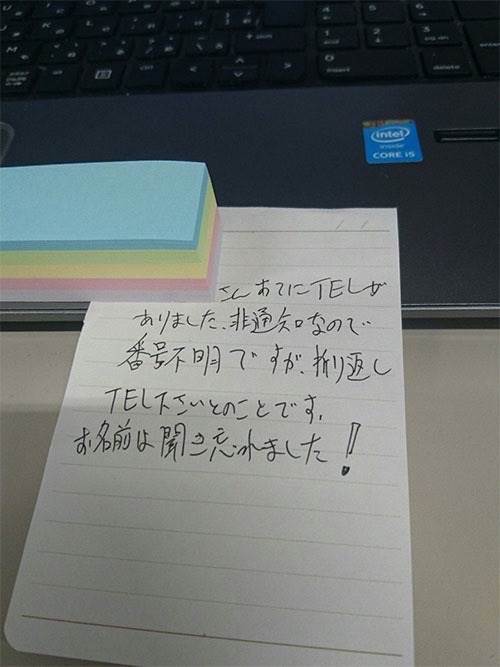 intel
inside
CORE i5
insert
delete
ctrl
さんあてにTELが
ありました、非通知なので
番号不明ですが、折り返し
TEL下さいとのことです。
お名前は聞き忘れました!